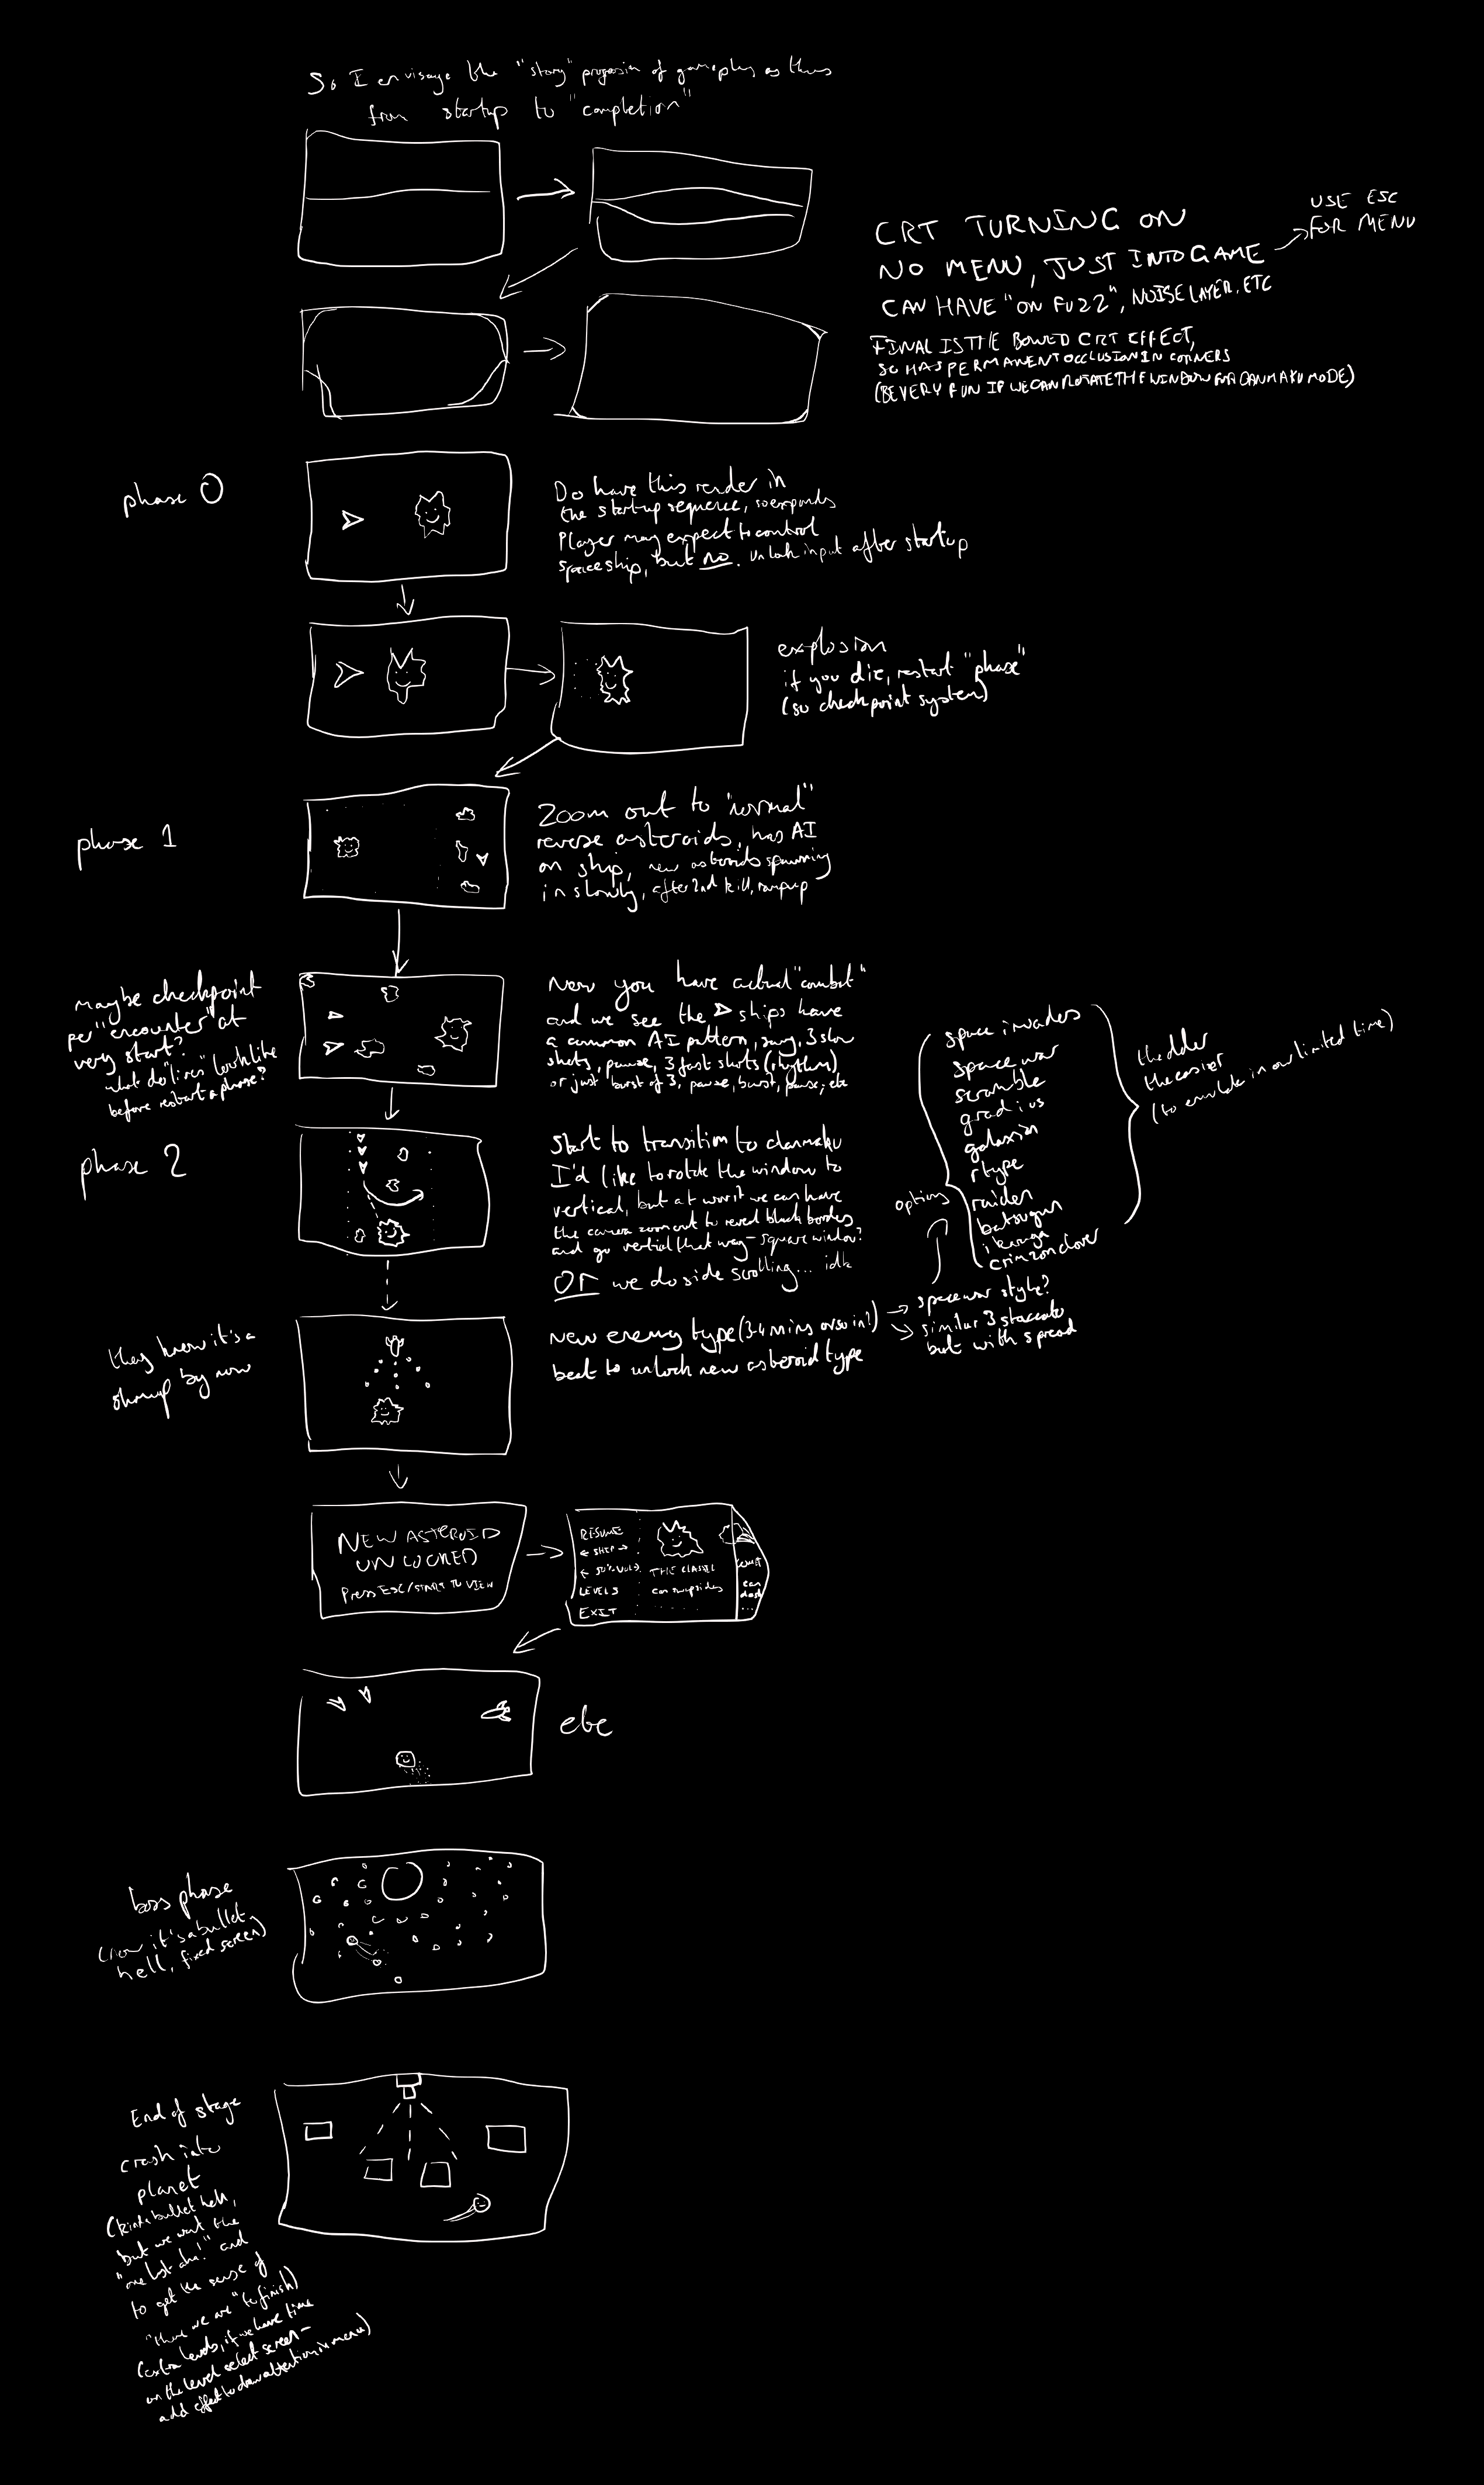 So I envisage the "story" progression of gameplay as thus
from startup to "completion"
CRT TURNING ON
NO MENU, JUST INTO GAME
USE ESC
FOR MENU
CAN HAVE "ON FUZZ", NOISE LAYER, ETC
FINAL IS THE BOWED CRT EFFECT,
SO HAS PERMANENT OCCLUSION IN CORNERS
(BE VERY FUN IF WE CAN ROTATE THE WINDOW FOR DANMAKU MODE)
phase 0
Do have this render in
the startup sequence, so expands
Player may expect to control
spaceship, but no. Unlock input after startup
explosion
if you die, restart "phase"
(so checkpoint system)
phase 1
Zoom out to "normal"
reverse asteroids, has AI
on ship, new asteroids spawning
in slowly, after 2nd kill, rampup
maybe checkpoint
per "encounter" at
very start?
what do "lives" look like
before restart a phase?
Now you have actual "combat"
and we see the ships have
a common AI pattern, say, 3 slow
shots, pause, 3 fast shots (rhythm)
or just burst of 3, pause, burst, pause, etc
phase 2
Start to transition to danmaku
I'd like to rotate the window to
vertical, but at worst we can have
the camera zoom out to reveal black borders
and go vertical that way - square window?
OR we do side scrolling... idk
options
space invaders
space war
scramble
gradius
galaxian
rtype
raiden
batsugun
ikaruga
crimzon clover
the older
the easier
(to emulate in our limited time)
they know it's a
shmup by now
New enemy type (3-4 mins or so in?)
beat to unlock new asteroid type
spacewar style?
similar 3 staccato
but with spread
NEW ASTEROID
UNLOCKED
Press ESC/START TO VIEW
RESUME
← SHIP →
← 50% VOL →
LEVELS
EXIT
THE CLASSIC
can swap sides
can
dash
...
etc
boss phase
(now it's a bullet
hell, fixed screen)
End of stage
crash into
planet
(kinda bullet hell,
but we want the
"one last aha!" and
to get the sense of
"there we are" (to finish)
(extra levels, if we have time
on the level select screen -
add effect to draw attention in menu)